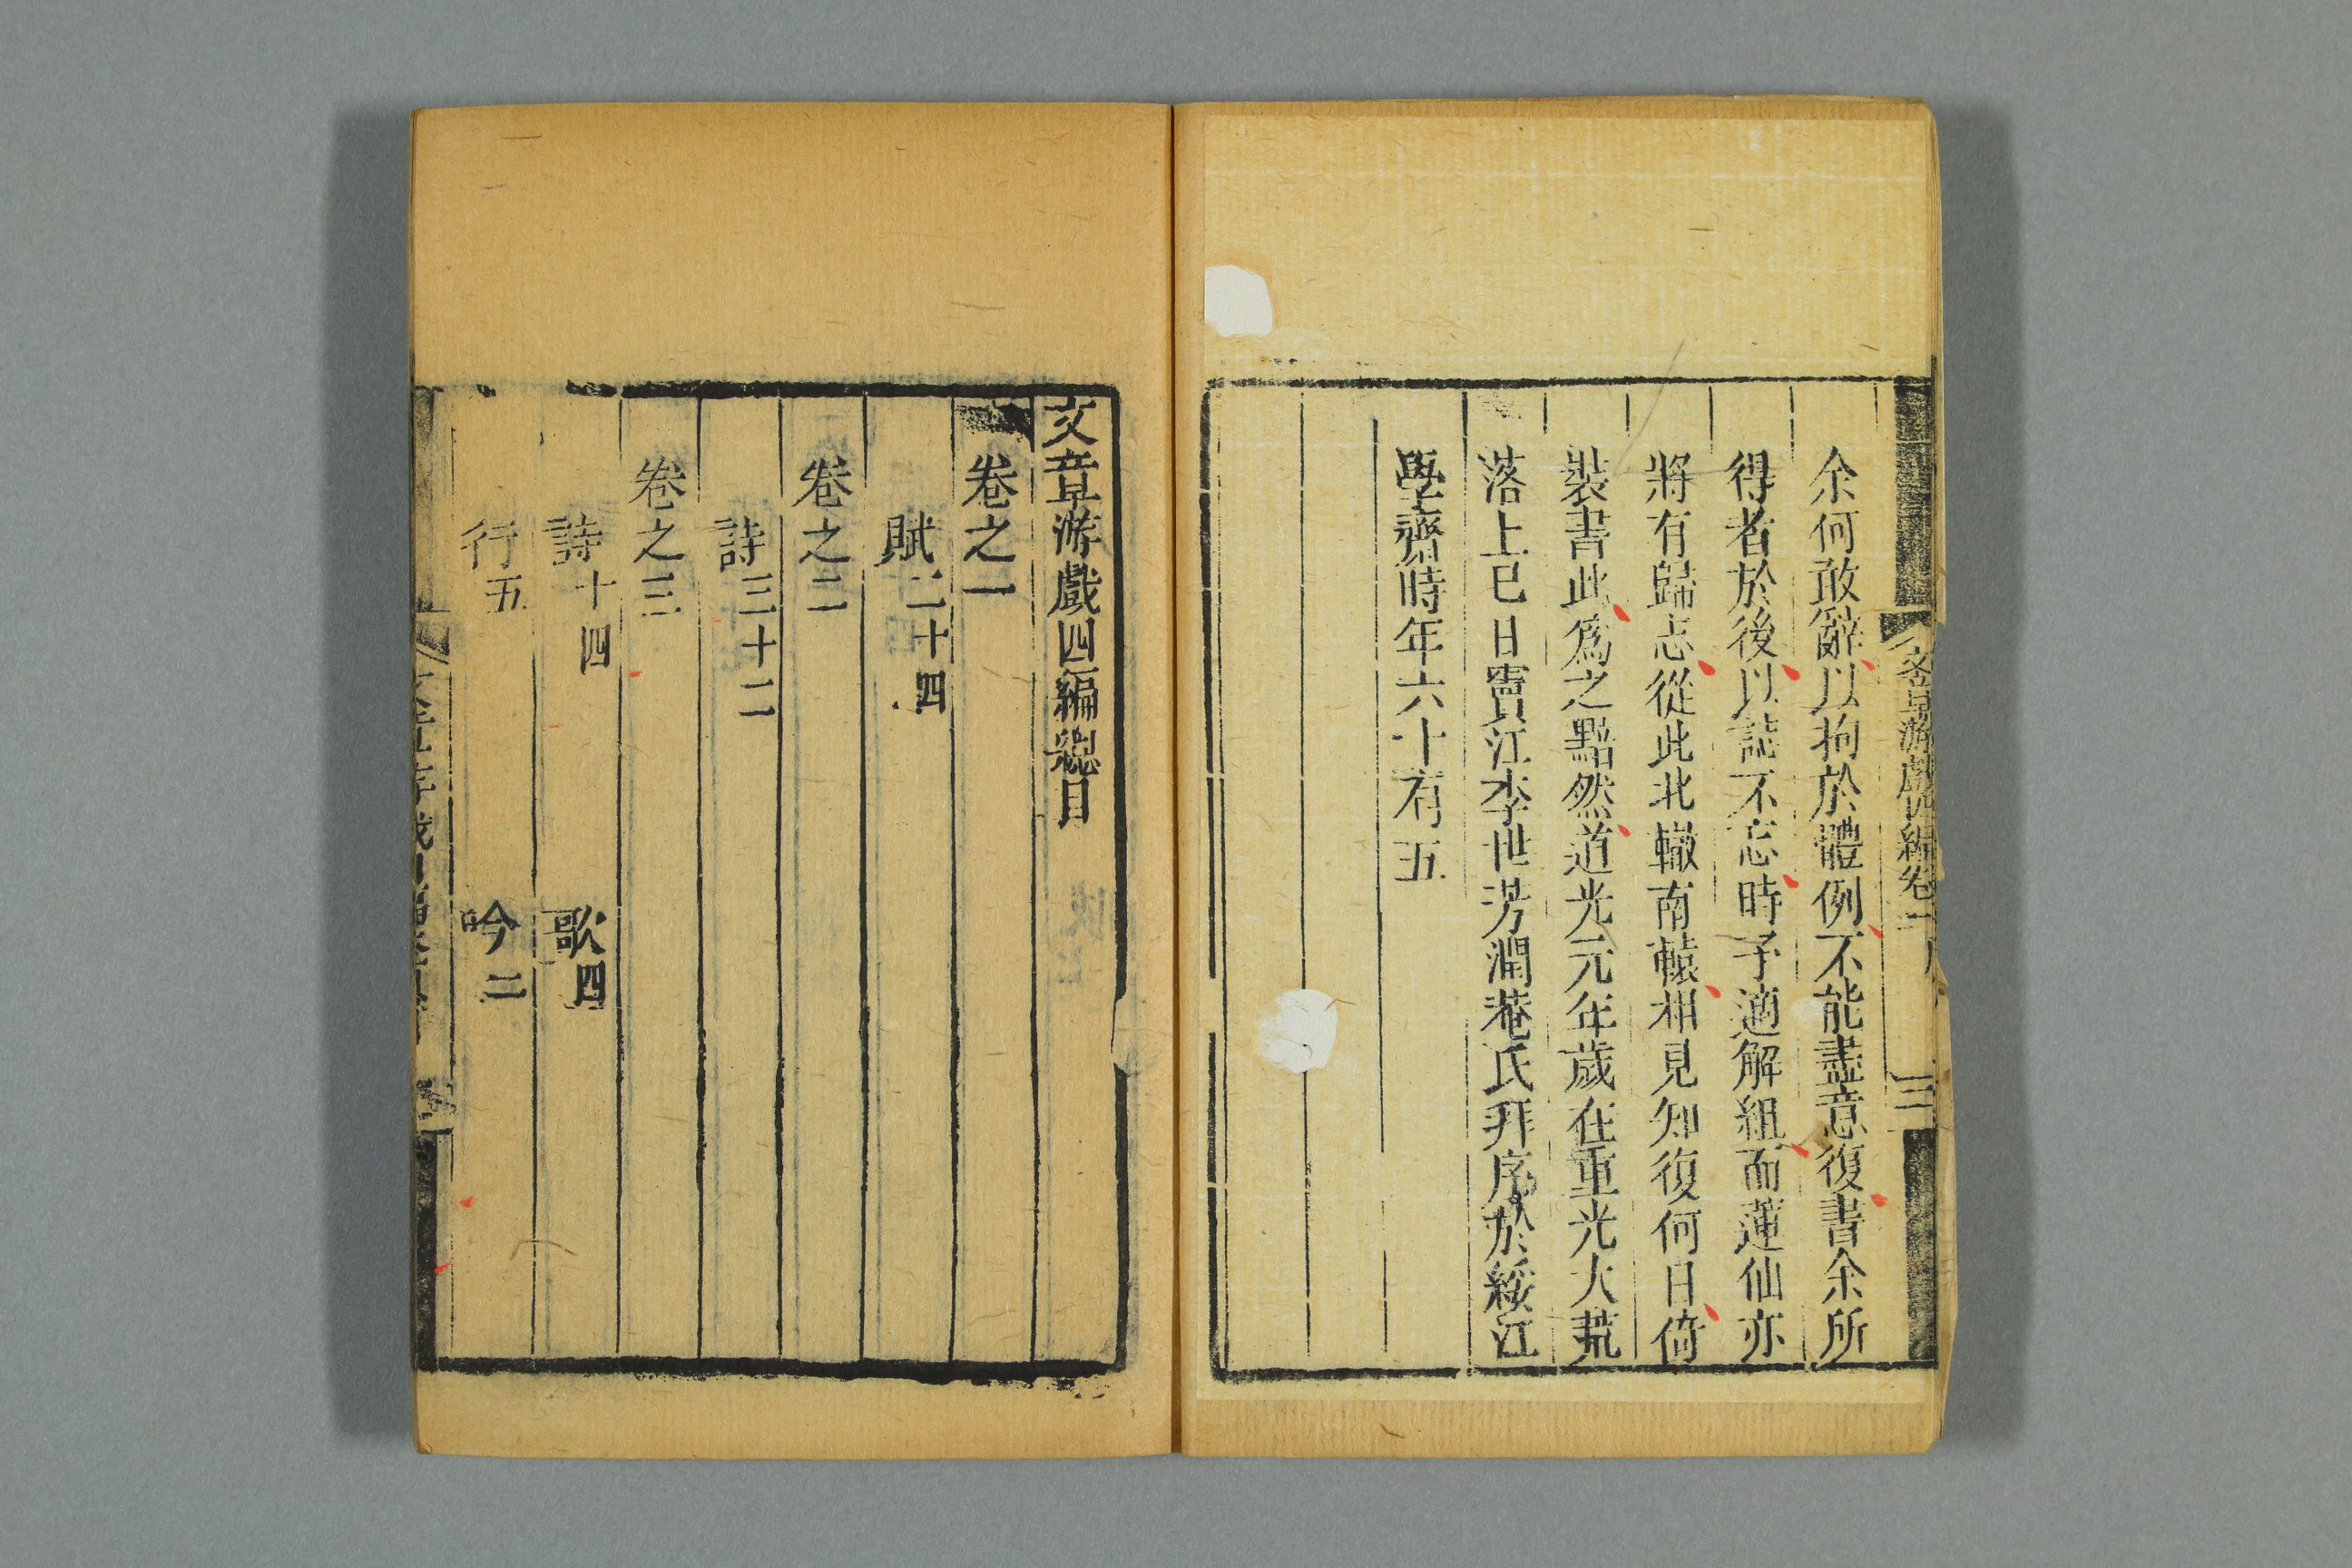 余何敢辭以拘於體例不能盡意復書余所
得者於後以誌不忘時予適解組而蓮仙亦
將有歸志從此北轍南轅相見知復何日倚
裝書此爲之黯然道光元年歲在重光大荒
落上巳日竇江李世芳潤菴氏拜序於綏江
學齋時年六十有五
文章游戲四編總目
卷之一
賦二十四
卷之二
詩三十二
卷之三
詩十四 歌四
行五 吟二